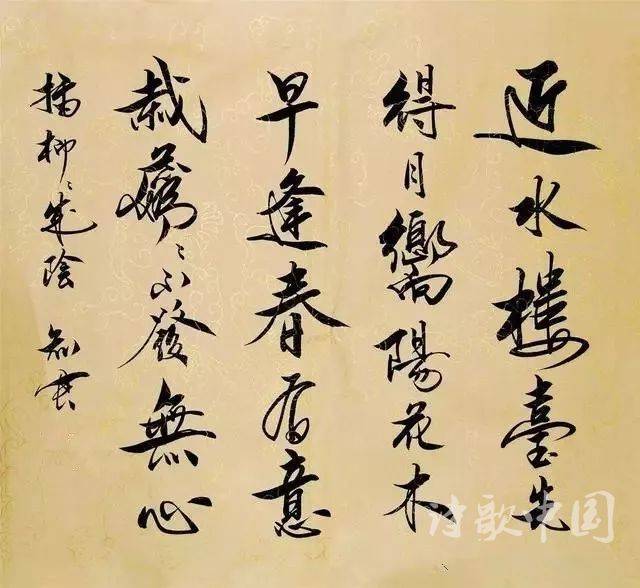 近水樓臺先
得月嚮陽花木
早逢春有意
栽蘤〻不發無心
插柳〻成陰
诗歌中国